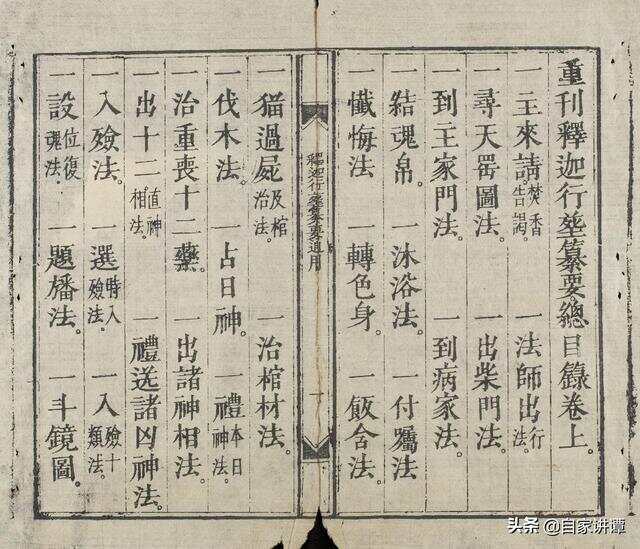 重刊釋迦行塟纂要總目錄卷上。
一主來請焚香告謁。 一法師出行法。
一尋天罡圖法。 一出柴門法。
一到主家門法。 一到病家法。
一結魂帛。 一沐浴法。 一付囑法
一懺悔法 一轉色身。 一飯含法
釋迦行塟纂要通用
一猫過屍及棺治法。 一治棺材法。
一伐木法。 一占日神。 一禮本日神法。
一治重喪十二藥。 一出諸神相法。
一出十二直神相法。 一禮送諸凶神法。
一入殮法。 一選時入殮法。 一入殮十類法。
一設位復魂法。 一題旛法。 一斗鏡圖。
头条 @自家讲谭